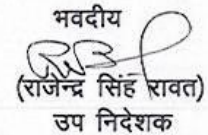 भवदीय
(राजेन्द्र सिंह रावत)
उप निदेशक